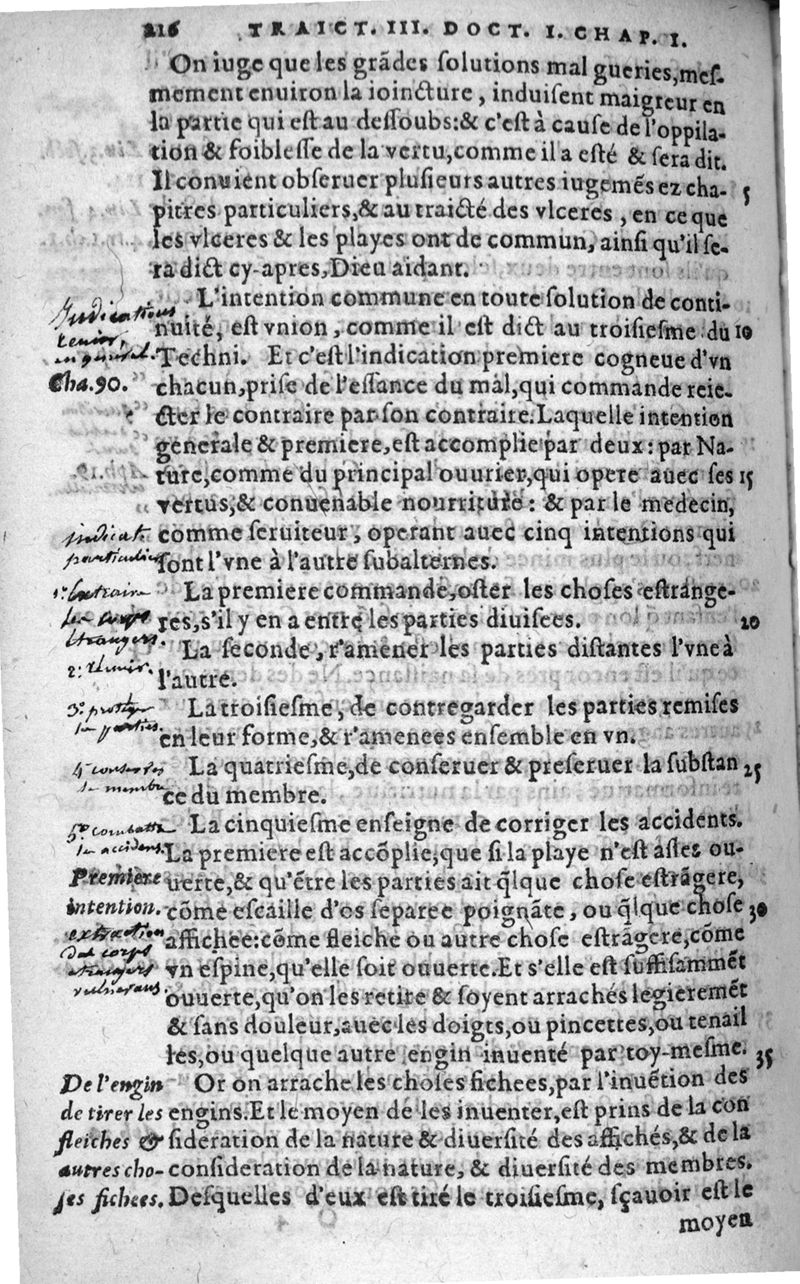 216 TRAICT. III. DOCT. I. CHAP. I.
On iuge que les grãdes solutions mal gueries, mes-
mement enuiron la ioincture, induisent maigreur en
la partie qui est au dessoubs:& c'est à cause de l'oppila-
tion & foiblesse de la vertu, comme il a esté & sera dit.
Il conuient obseruer plusieurs autres iugemẽs ez cha- 5
pitres particuliers,& au traicté des vlceres, en ce que
les vlceres & les playes ont de commun, ainsi qu'il se-
ra dict cy-apres, Dieu aidant.
L'intention commune en toute solution de conti-
Indications
nuité, est vnion, comme il est dict au troisiesme du 10
en general.
Techni. Et c'est l'indication premiere cogneue d'vn
Cha.90.
chacun, prise de l'essance du mal, qui commande reie-
cter le contraire par son contraire. Laquelle intention
generale & premiere, est accomplie par deux: par Na-
ture, comme du principal ouurier, qui opere auec ses 15
vertus,& conuenable nourriture: & par le medecin,
indicat.
comme seruiteur, operant auec cinq intentions qui
particulieres
sont l'vne à l'autre subalternes.
1º. Extraire
La premiere commande, oster les choses estrange-
les corps
res, s'il y en a entre les parties diuisees. 20
étrangers.
La seconde, r'amener les parties distantes l'vne à
2º. réunir.
l'autre.
3º. proteger
La troisiesme, de contregarder les parties remises
les parties.
en leur forme,& r'amenees ensemble en vn.
4º conserver
La quatriesme, de conseruer & preseruer la substan 25
le membre
ce du membre.
5º. combattre
La cinquiesme enseigne de corriger les accidents.
les accidens.
La premiere est accõplie, que si la playe n'est assés ou-
Premiere
uerte,& qu'ẽtre les parties ait q̃lque chose estrãgere,
intention.
cõme escaille d'os separee poignãte, ou q̃lque chose 30
extraction
affichee: cõme fleiche ou autre chose estrãgere, cõme
des corps
etrangers
vn espine, qu'elle soit ouuerte. Et s'elle est suffisammẽt
vulnerans.
ouuerte, qu'on les retire & soyent arrachés legieremẽt
& sans douleur, auec les doigts, ou pincettes, ou tenail
les, ou quelque autre engin inuenté par toy-mesme. 35
De l'engin
Or on arrache les choses fichees, par l'inuẽtion des
de tirer les
engins. Et le moyen de les inuenter, est prins de la con
fleiches &
sideration de la nature & diuersité des affichés,& de la
autres cho-
consideration de la nature, & diuersité des membres.
ses fichees.
Desquelles d'eux est tiré le troisiesme, sçauoir est le
moyen